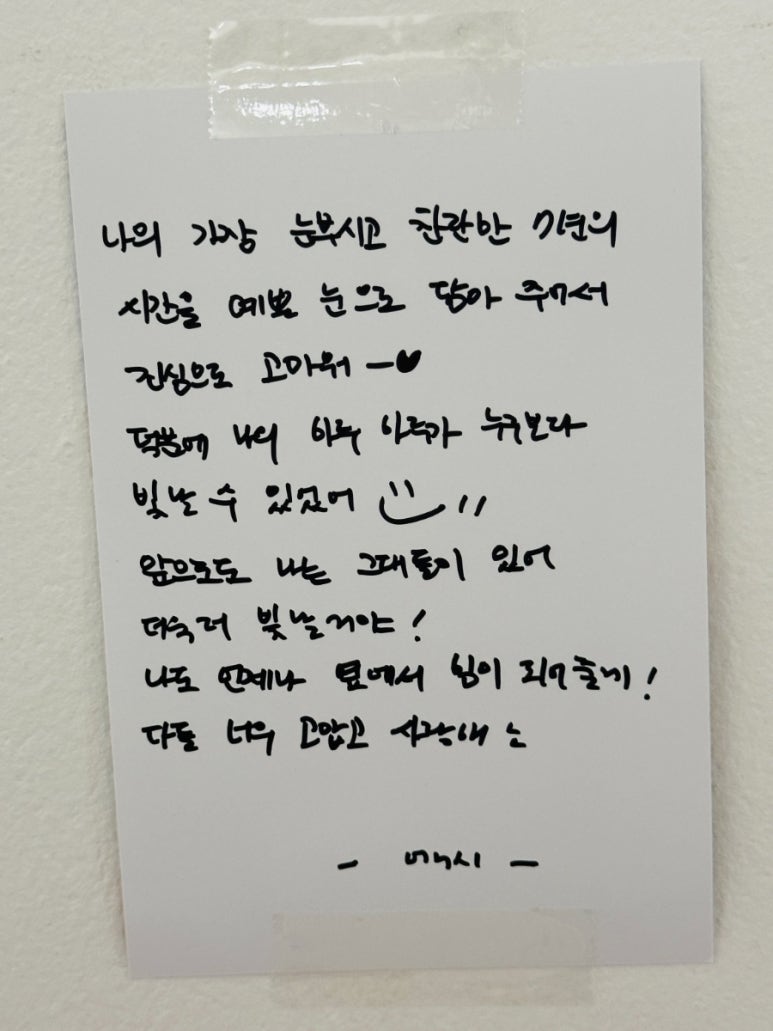 나의 가장 눈부시고 찬란한 7년의
시간을 예쁜 눈으로 담아 주어서
진심으로 고마워 ー♥
덕분에 나의 하루 하루가 누구보다
빛날 수 있었어 :) "
앞으로도 나는 그대들이 있어
더욱 더 빛날거야!
나도 언제나 옆에서 힘이 되어줄게!
다들 너무 고맙고 사랑해